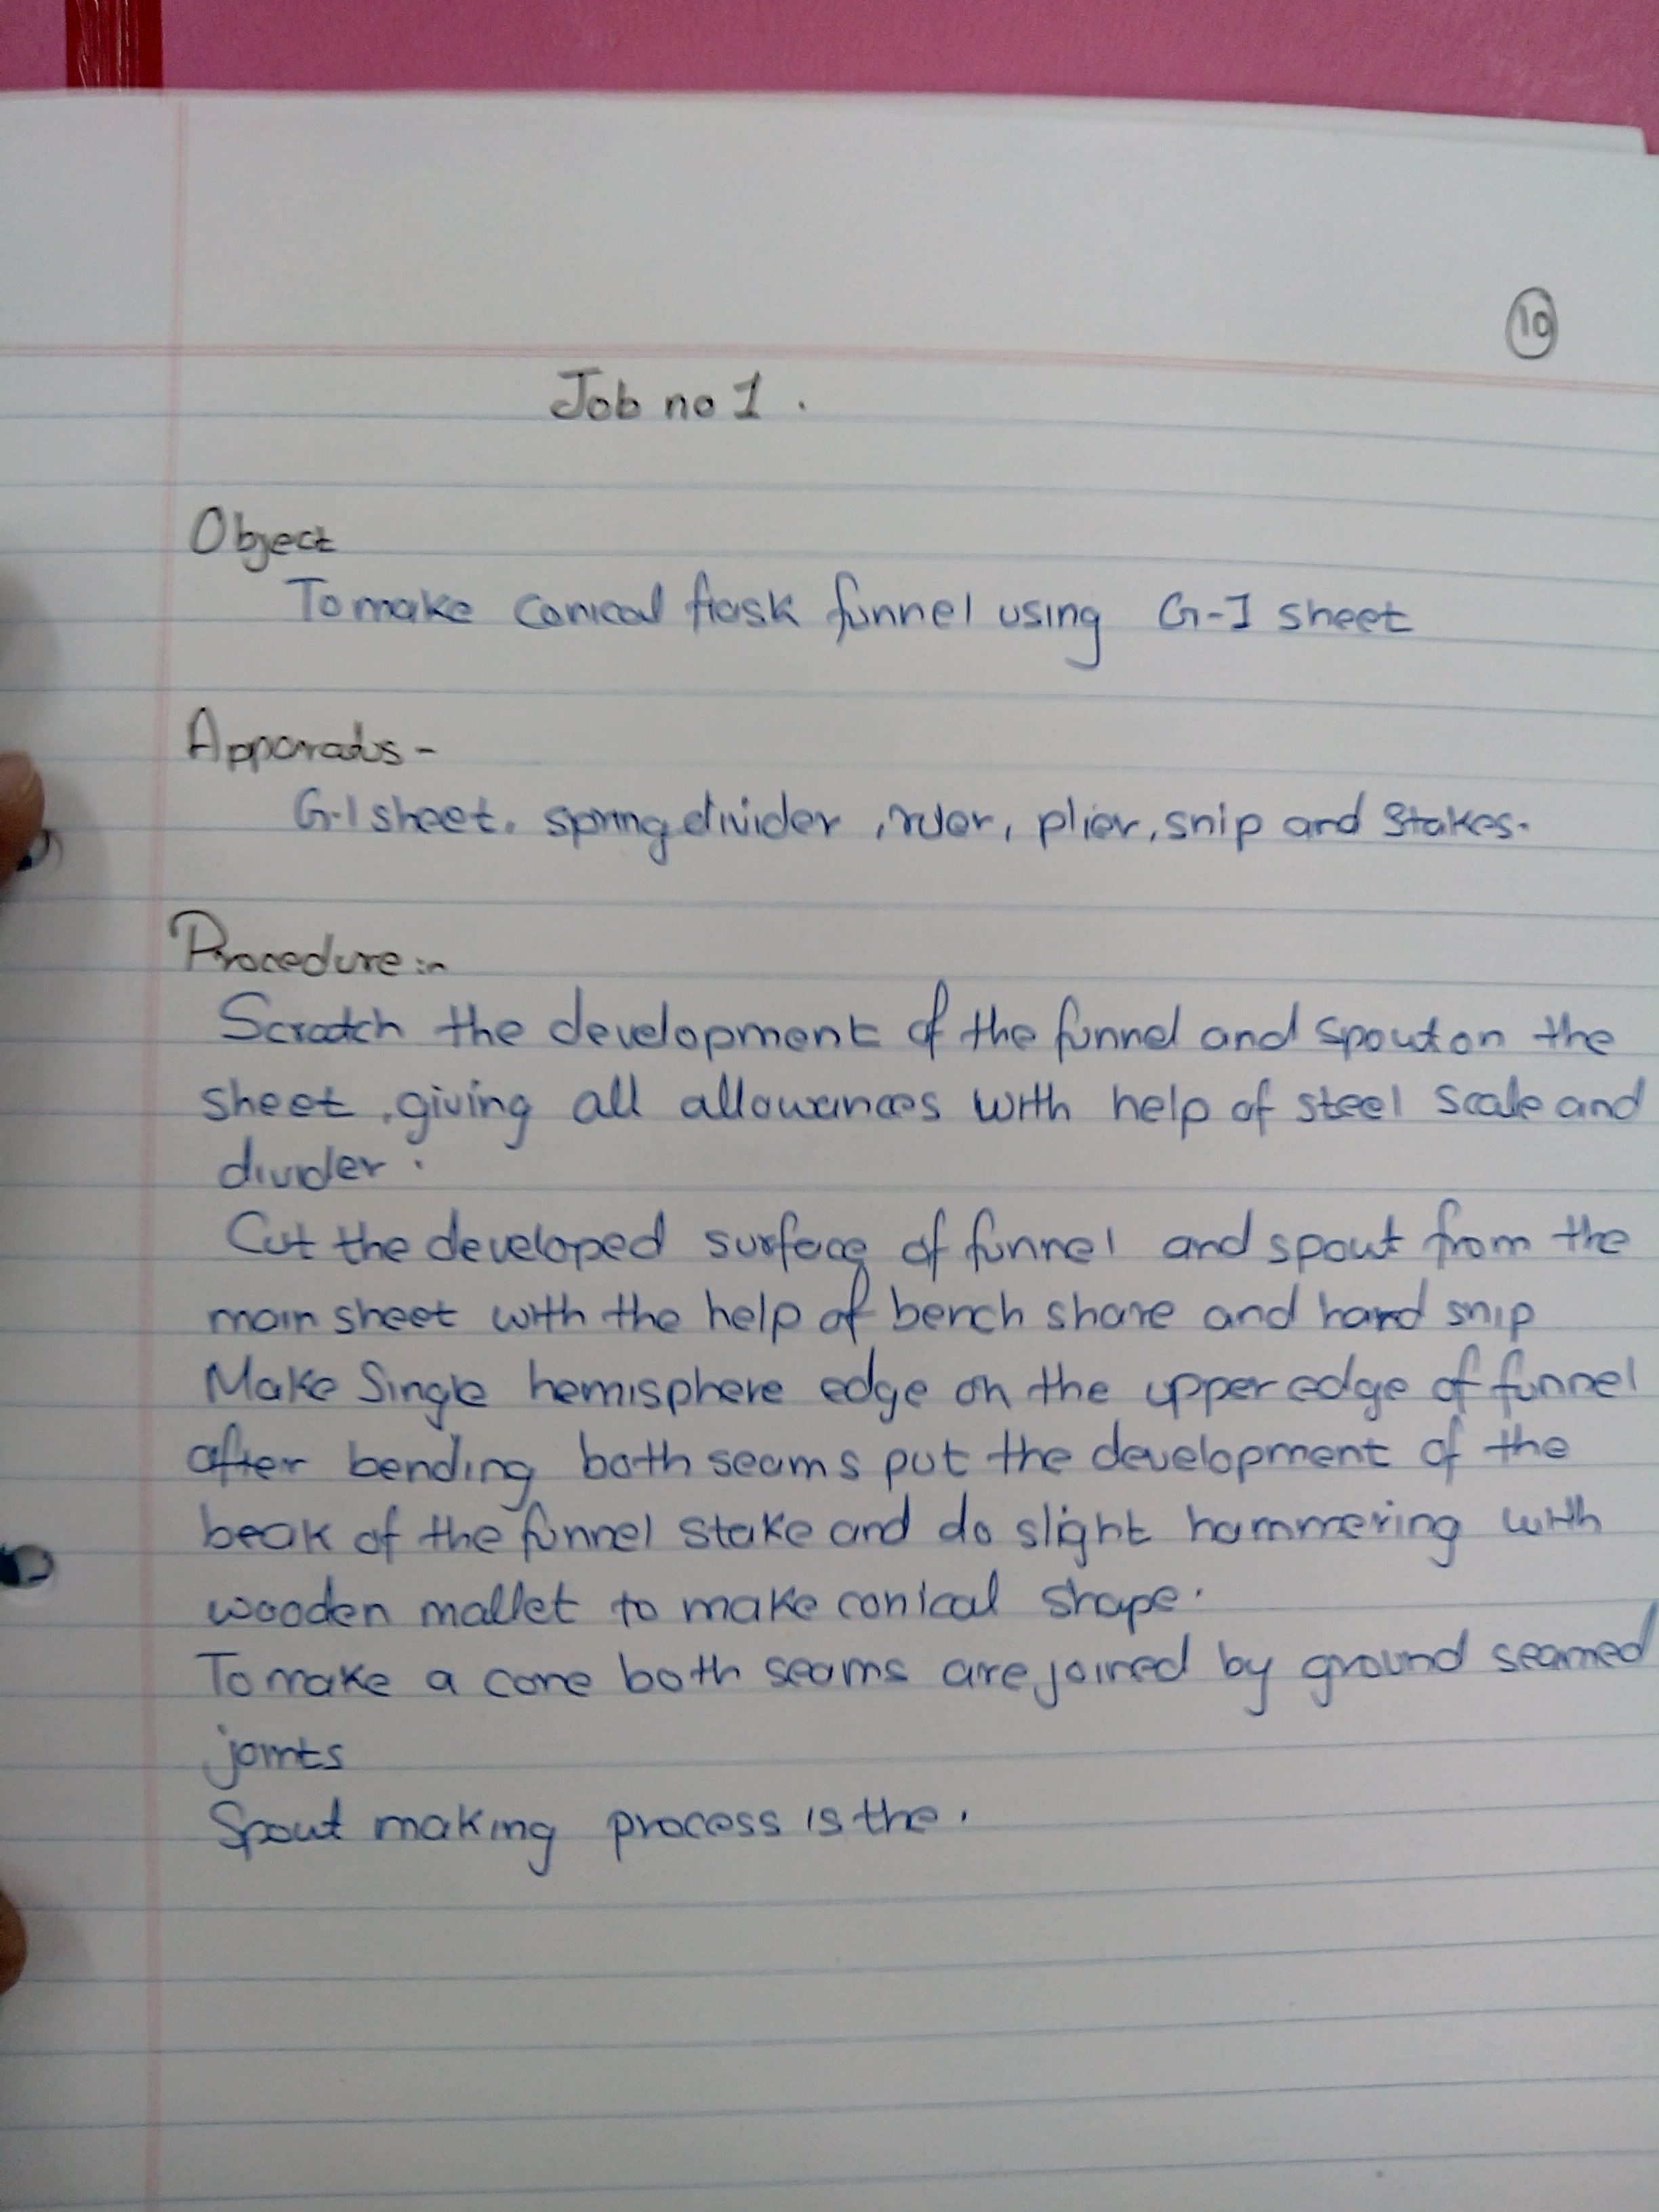 10
Job no 1.
Object
To make conical flask funnel using G-I sheet
Apparatus -
G-I sheet, spring divider, ruler, plier, snip and stakes.
Procedure :-
Scratch the development of the funnel and spout on the
sheet, giving all allowances with help of steel scale and
divider.
Cut the developed surface of funnel and spout from the
main sheet with the help of bench share and hard snip
Make Single hemisphere edge on the upper edge of funnel
after bending both seams put the development of the
beak of the funnel stake and do slight hammering with
wooden mallet to make conical shape.
To make a cone both seams are joined by ground seamed
joints
Spout making process is the.